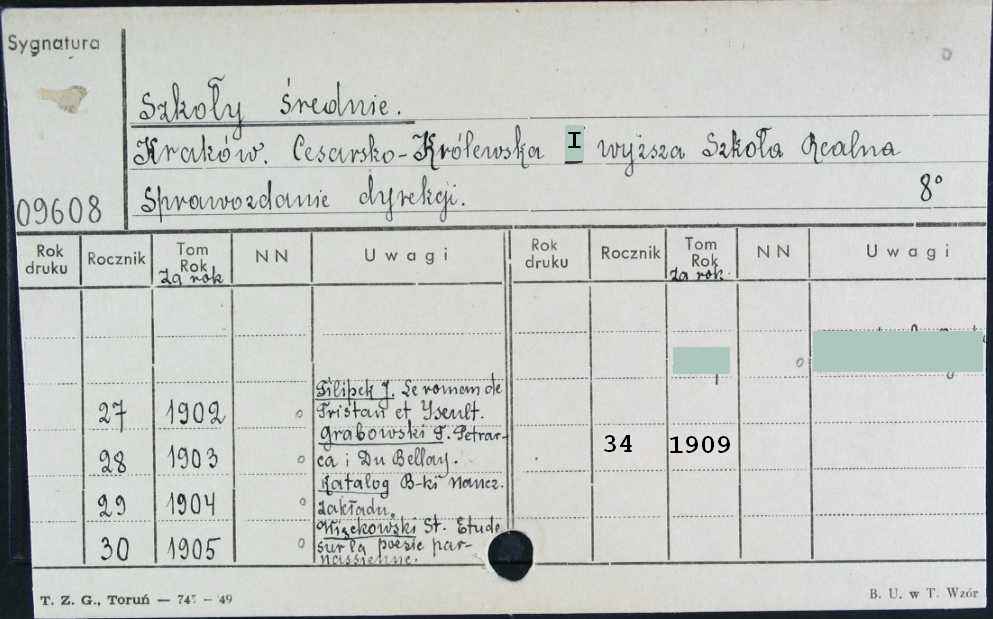 Sygnatura
Szkoły średnie.
Kraków. Cesarsko-Królewska I wyższa Szkoła Realna
Sprawozdanie dyrekcji.
8°
09608
Rok druku Rocznik Tom Rok za rok NN Uwagi Rok druku Rocznik Tom Rok za rok NN Uwagi
27 1902 Filipek J. Le roman de
Tristan et Yseult.
28 1903 Grabowski T. Petrar-
ca i Du Bellay.
34 1909
29 1904 Katalog B-ki naucz.
zakładu.
30 1905 St. Etude
sur la poesie par-
nassienne.
T. Z. G., Toruń — 745 – 49
B. U. w T. Wzór